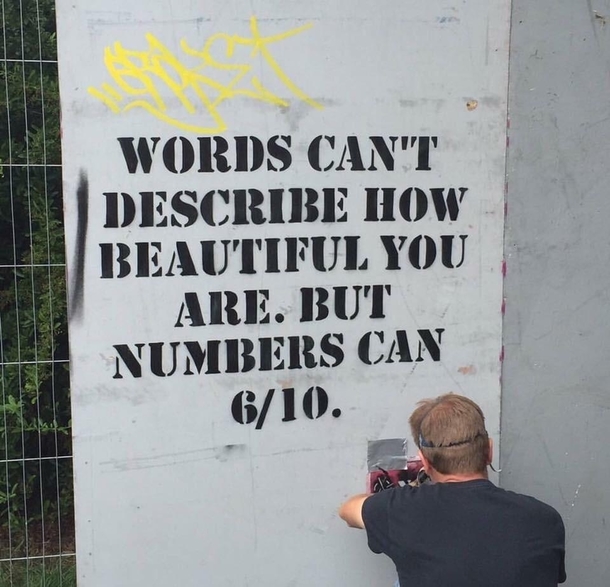 WORDS CAN'T
DESCRIBE HOW
BEAUTIFUL YOU
ARE. BUT
NUMBERS CAN
6/10.